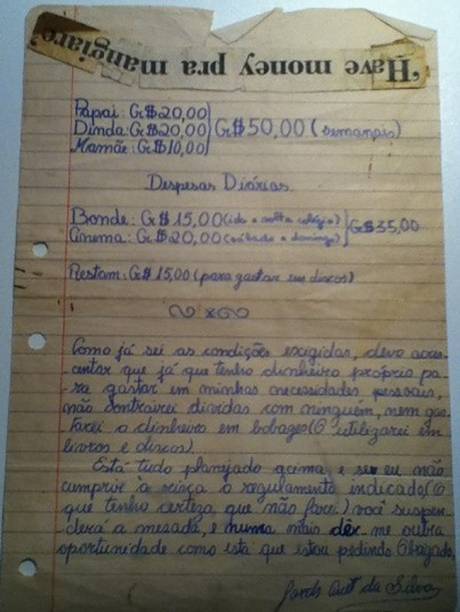 'Have money pra mangiare'
Papai: Cr$20,00
Dinda: Cr$20,00 Cr$50,00 (semanais)
Mamãe: Cr$10,00
Despesas Diárias
Bonde: Cr$15,00 (ida e volta colégio) Cr$35,00
Cinema: Cr$20,00 (sábado e domingo)
Restam: Cr$15,00 (para gastar em discos)
Como já sei as condições exigidas, devo acres-
centar que já que tenho dinheiro próprio pa-
ra gastar em minhas necessidades pessoais,
não contrairei dívidas com ninguém, nem gas-
tarei o dinheiro em bobagens (O utilizarei em
livros e discos).
Está tudo planejado acima e se eu não
cumprir à risca o regulamento indicado (O
que tenho certeza que não farei) você suspen-
derá a mesada, e numa mais dê-me outra
oportunidade como esta que estou pedindo. Obrigado
da Silva